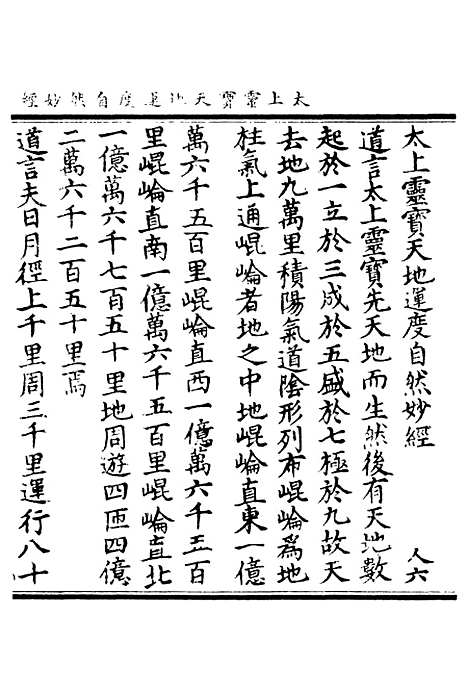 太上靈寶天地運度自然妙經
太上靈寶天地運度自然妙經 人六
道言太上靈寶先天地而生然後有天地數
起於一立於三成於五盛於七極於九故天
去地九萬里積陽氣道陰形列布崐崘爲地
柱氣上通崐崘者地之中地崐崘直東一億
萬六千五百里崐崘直西一億萬六千五百
里崐崘直南一億萬六千五百里崐崘直北
一億萬六千七百五十里地周遊四匝四億
二萬六千二百五十里焉
道言夫日月徑上千里周三千里運行八十